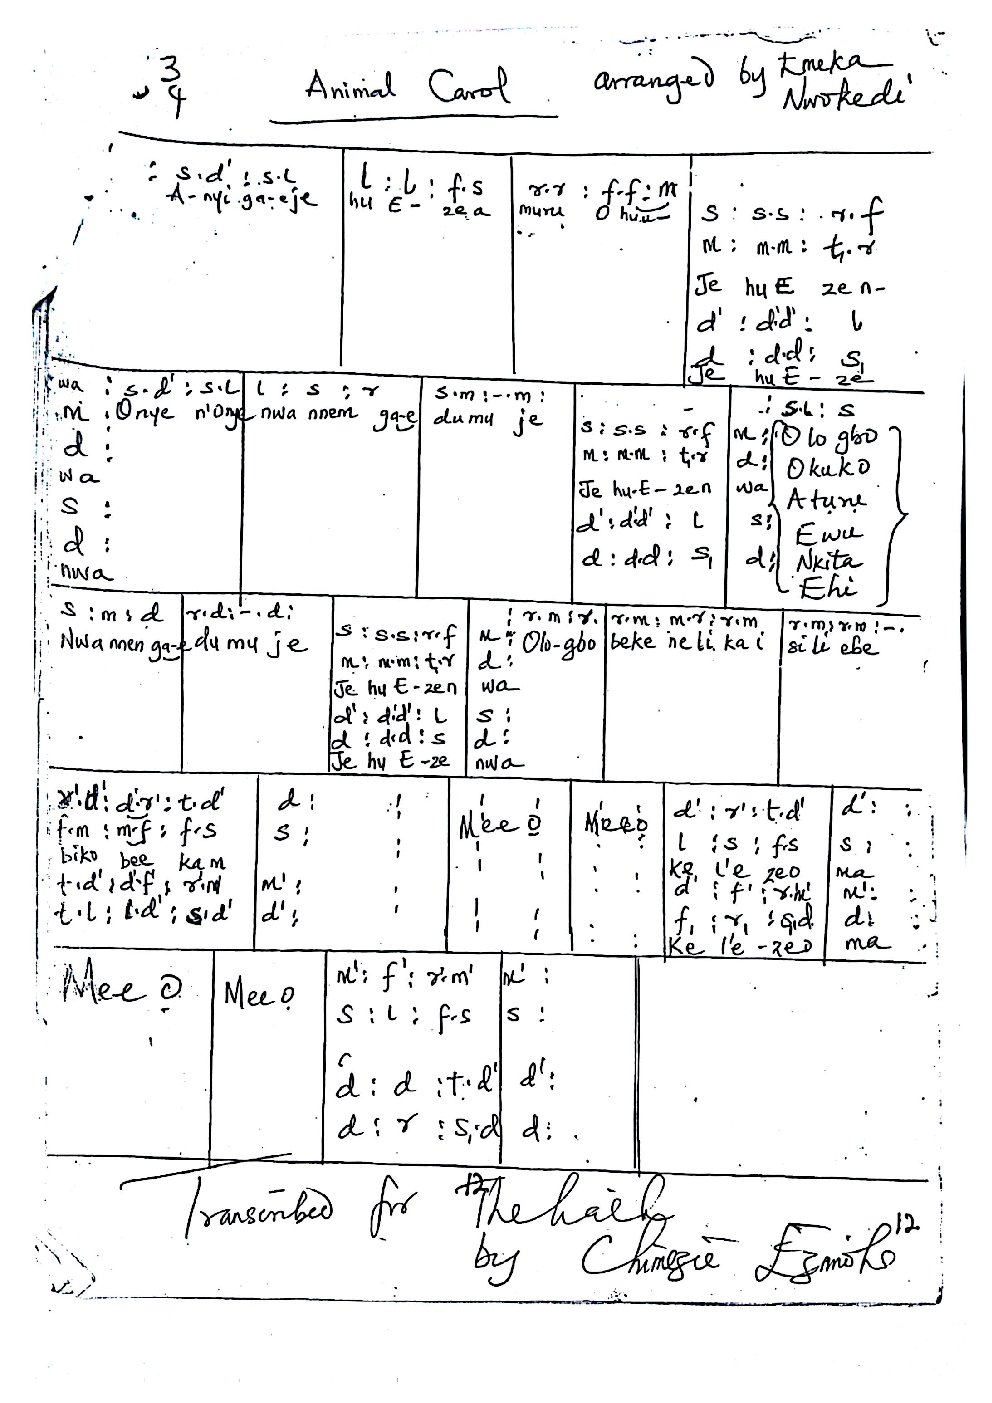 3/4 Animal Carol arranged by Emeka Nwokedi
: s.d' : s.l | l : l : f.s | r.r : f.f : m
A-nyi ga-eje hu E- ze a muru O huu
s : s.s : r.f
m : m.m : t,.r
Je hu E ze n-
d' : d'.d' : l
d : d.d : s,
Je hu E - ze
wa : s.d' : s.l | l : s : r | s.m : -.m :
m : Onye n'Onye nwa nnem ga-e du mu je
d :
wa
s :
d :
nwa
s : s.s : r.f
m : m.m : t,.r
Je hu-E-zen
d' : d'.d' : l
d : d.d : s,
: s.l : s
m : Olo gbo
d : Okuko
wa Aturu
s : Ewu
d : Nkita
Ehi
s : m : d | r.d : -.d :
Nwa nnen ga-e du mu je
s : s.s : r.f
m : m.m : t,.r
Je hu E-zen
d' : d'.d' : l
d : d.d : s
Je hu E-ze
: r.m : r. | r.m : m.r : r.m | r.m : r.m : -.
m : Olo-gbo beke ne li ka i si li ebe
d :
wa
s :
d :
nwa
r'.d' : d'.r' : t.d' | d : :
f.m : m.f : f.s | s :
biko bee kam
t.d' : d'.f' : r'.m' | m' :
t.l : l.d' : s.d' | d' :
Mee O Mee O
d' : r' : t.d' | d' : :
l : s : f.s | s :
Ke l'e zeo ma
d' : f' : r'.m' | m' :
f, : r, : s,.d | d :
Ke l'e - zeo ma
Mee O Mee O
m' : f' : r'.m' | m' :
s : l : f.s | s :
d : d : t.d' | d' :
d : r : s,.d | d : .
Transcribed for
by
12